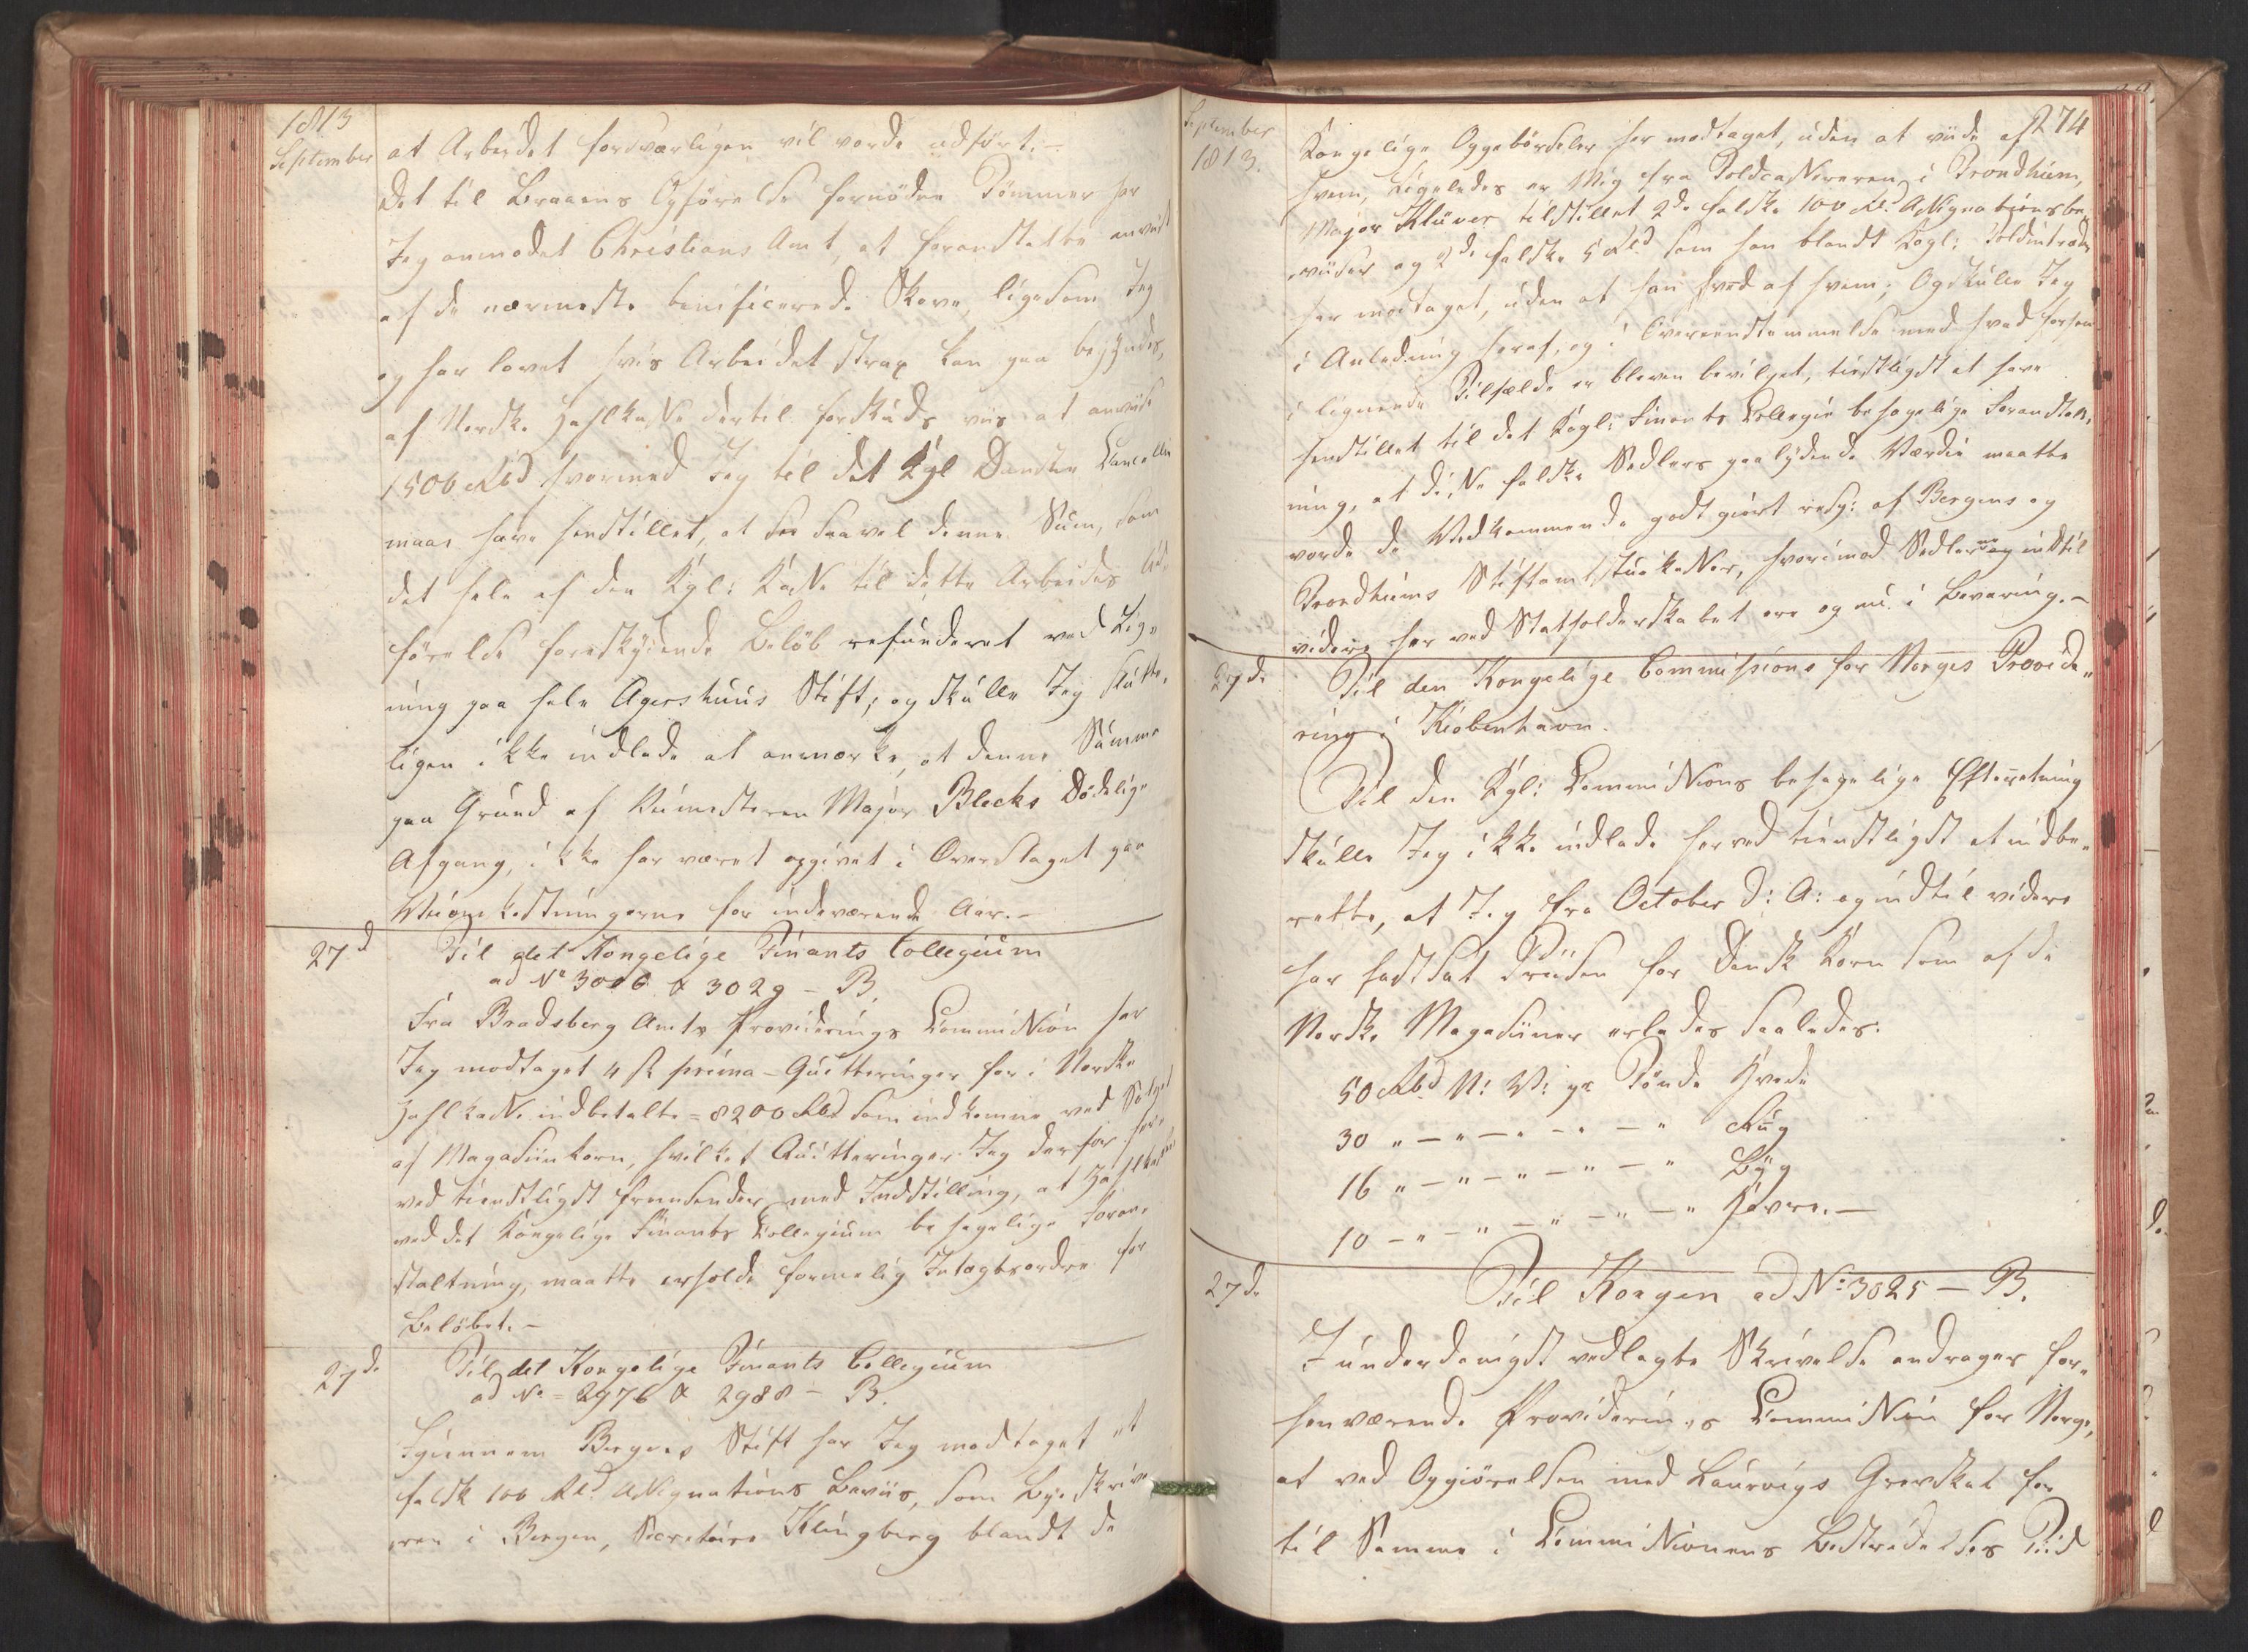 1813
September
at Arbeidet forsvarligen vil vorde udført.-
Det til Broens Opførelse fornödne Tømmer har
Jeg anmodet Christians Amt, at foranstalte anviist
af de nærmeste beneficerede Skove, ligesom Jeg
og har lovet hvis Arbeidet strax kan gaa begyndes,
af Norske Zahlkasse dertil forskudsviis at anviise
1500 Rbd hvormed Jeg til det Kgl Danske Cancellie
maae have henstillet, at faa saavel denne Sum, som
det hele af den Kgl: Kasse til dette Arbeides Ud-
førelse forskydende Beløb refunderet ved Lig-
ning paa hele Agershuus Stift; og skulle Jeg slutte-
ligen ikke undlade at anmærke, at denne Summa
paa Grund af Veimesteren Major Blecks Dødelige
Afgang, ikke har været opgivet i Overslaget paa
Veiomkostningerne for indeværende Aar.-
27d
Til det Kongelige Finants Collegium
ad No 3006 & 3029 - B.
Fra Bradsberg Amts Provideerings Commission har
Jeg modtaget 4 st prima-Quitteringer for i Norske
Zahlkasse indbetalte = 8200 Rbd som indkomne ved Salget
af Magasiinkorn, hvilket Quitteringer Jeg derfor her-
ved tienstligst fremsender med Indstilling, at Zahlkassen
ved det Kongelige Finants Collegium behagelige Foran-
staltning, maatte erholde formelig Indtægtsordre for
Beløbet.-
27de
Til det Kongelige Finants Collegium
ad No = 2976 & 2988 - B.
Igiennem Bergens Stift har Jeg modtaget et
falsk 100 Rd. Assignations Beviis, som Bye-skrive-
ren i Bergen, Secretaire Klingberg blandt de
September
1813.
274
Kongelige Oppebørsler har modtaget, uden at viide af
hvem, Ligeledes er Mig fra Toldcassereren i Trondhiem,
Major Klüwer tilstillet 2de falske 100 Rd. Assignationsbe-
viiser og 2de falske 5 Rd som han blandt Kgl: Toldintrader
har modtaget, uden at han veed af hvem; Og skulle Jeg
i Anledning heraf, og i Overeensstemmelse med hvad forhen
i lignende Tilfælde er bleven bevilget, tienstligst at have
henstillet til det Kgl: Finants Collegii behagelige Foranstalt-
ning, at disse falske Sedlers paalydende Værdie maatte
vorde de Vedkommende godtgiort resp: af Bergens og
Trondhiems Stiftamtstuekasser, hvorimod Sedlerne og indtil
videre her ved Statholderskabet ere og nu i Bevaring.-
27de
Til den Kongelige Commissions for Norges Provide-
ring i Kiøbenhavn.
Til den Kgl: Commissions behagelige Efterretning
skulle Jeg ikke undlade herved tienstligst at indbe-
rette, at Jeg fra October d: A: og indtil videre
har fastsat Priisen for Dansk Korn som af de
Norske Magasiner erlades saaledes:
50 Rbd N: V: pr Tønde Hvede
30 " - " - " - " - " Rug
16 " - " - " - " - " Byg
10 - " - " - " - " - " Havre.-
27de
Til Kongen ad No: 3025 - B.
I underdanigst vedlagte Skrivelse andrager for-
henværende Provideerings Commission for Norge,
at ved Opgiørelsen med Laurvigs Grevskab for
til Samme i Commissionens Bestyrelses Tiid